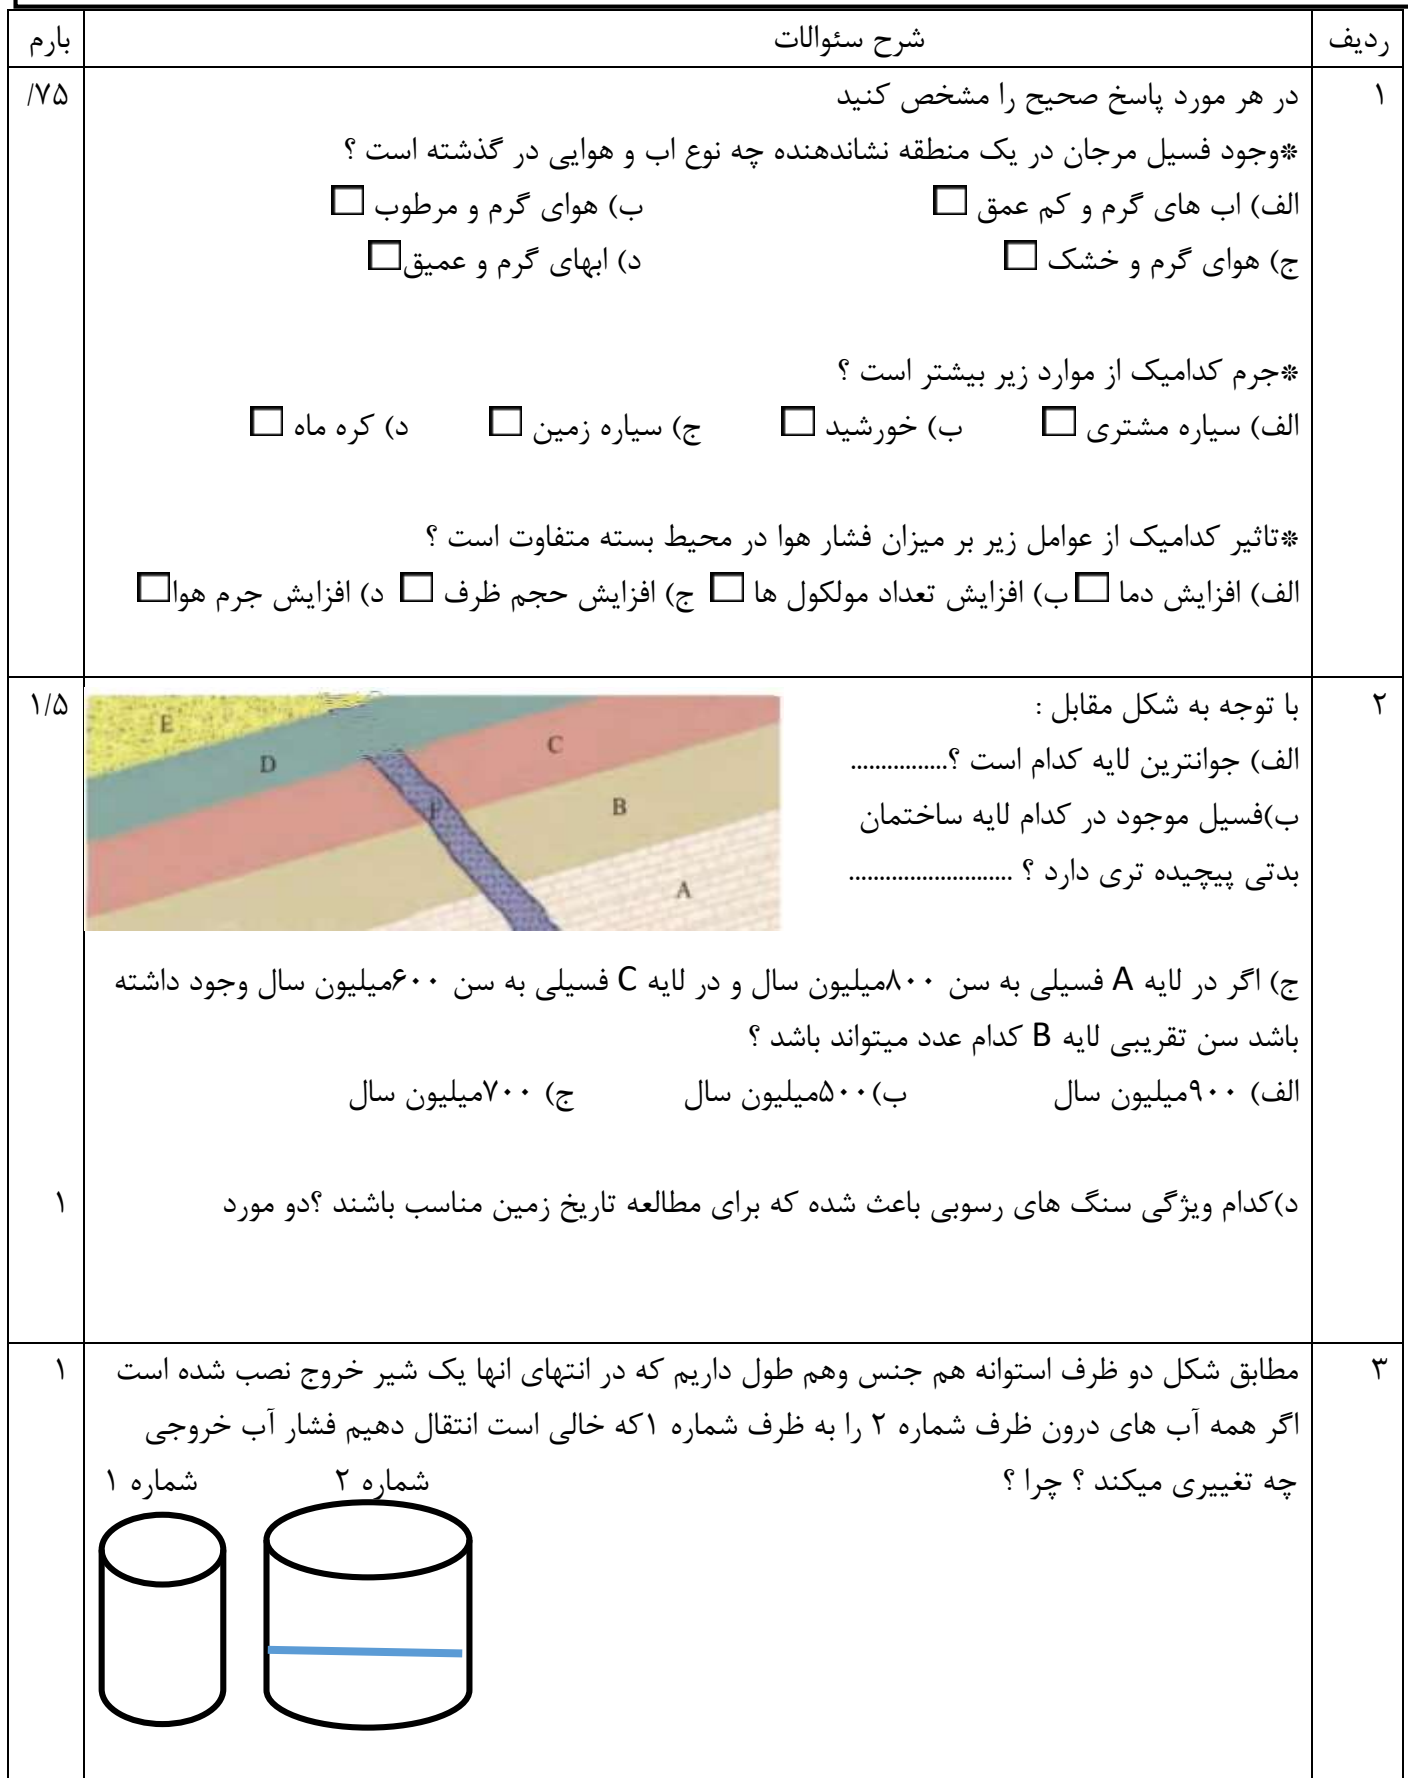 ردیف شرح سئوالات بارم
۱ در هر مورد پاسخ صحیح را مشخص کنید /۷۵
*وجود فسیل مرجان در یک منطقه نشاندهنده چه نوع اب و هوایی در گذشته است ؟
الف) اب های گرم و کم عمق ب) هوای گرم و مرطوب
ج) هوای گرم و خشک د) ابهای گرم و عمیق
*جرم کدامیک از موارد زیر بیشتر است ؟
الف) سیاره مشتری ب) خورشید ج) سیاره زمین د) کره ماه
*تاثیر کدامیک از عوامل زیر بر میزان فشار هوا در محیط بسته متفاوت است ؟
الف) افزایش دما ب) افزایش تعداد مولکول ها ج) افزایش حجم ظرف د) افزایش جرم هوا
۲ با توجه به شکل مقابل : ۱/۵
الف) جوانترین لایه کدام است ؟................
ب)فسیل موجود در کدام لایه ساختمان
بدتی پیچیده تری دارد ؟ ...........................
E
D
C
F
B
A
ج) اگر در لایه A فسیلی به سن ۸۰۰میلیون سال و در لایه C فسیلی به سن ۶۰۰میلیون سال وجود داشته
باشد سن تقریبی لایه B کدام عدد میتواند باشد ؟
الف) ۹۰۰میلیون سال ب)۵۰۰میلیون سال ج) ۷۰۰میلیون سال
د)کدام ویژگی سنگ های رسوبی باعث شده که برای مطالعه تاریخ زمین مناسب باشند ؟دو مورد ۱
۳ مطابق شکل دو ظرف استوانه هم جنس وهم طول داریم که در انتهای انها یک شیر خروج نصب شده است ۱
اگر همه آب های درون ظرف شماره ۲ را به ظرف شماره ۱که خالی است انتقال دهیم فشار آب خروجی
چه تغییری میکند ؟ چرا ؟ شماره ۲ شماره ۱